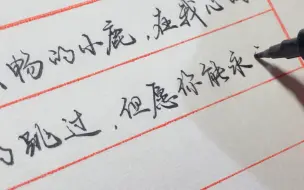 畅的小鹿，在我心
跳过，但愿你能永